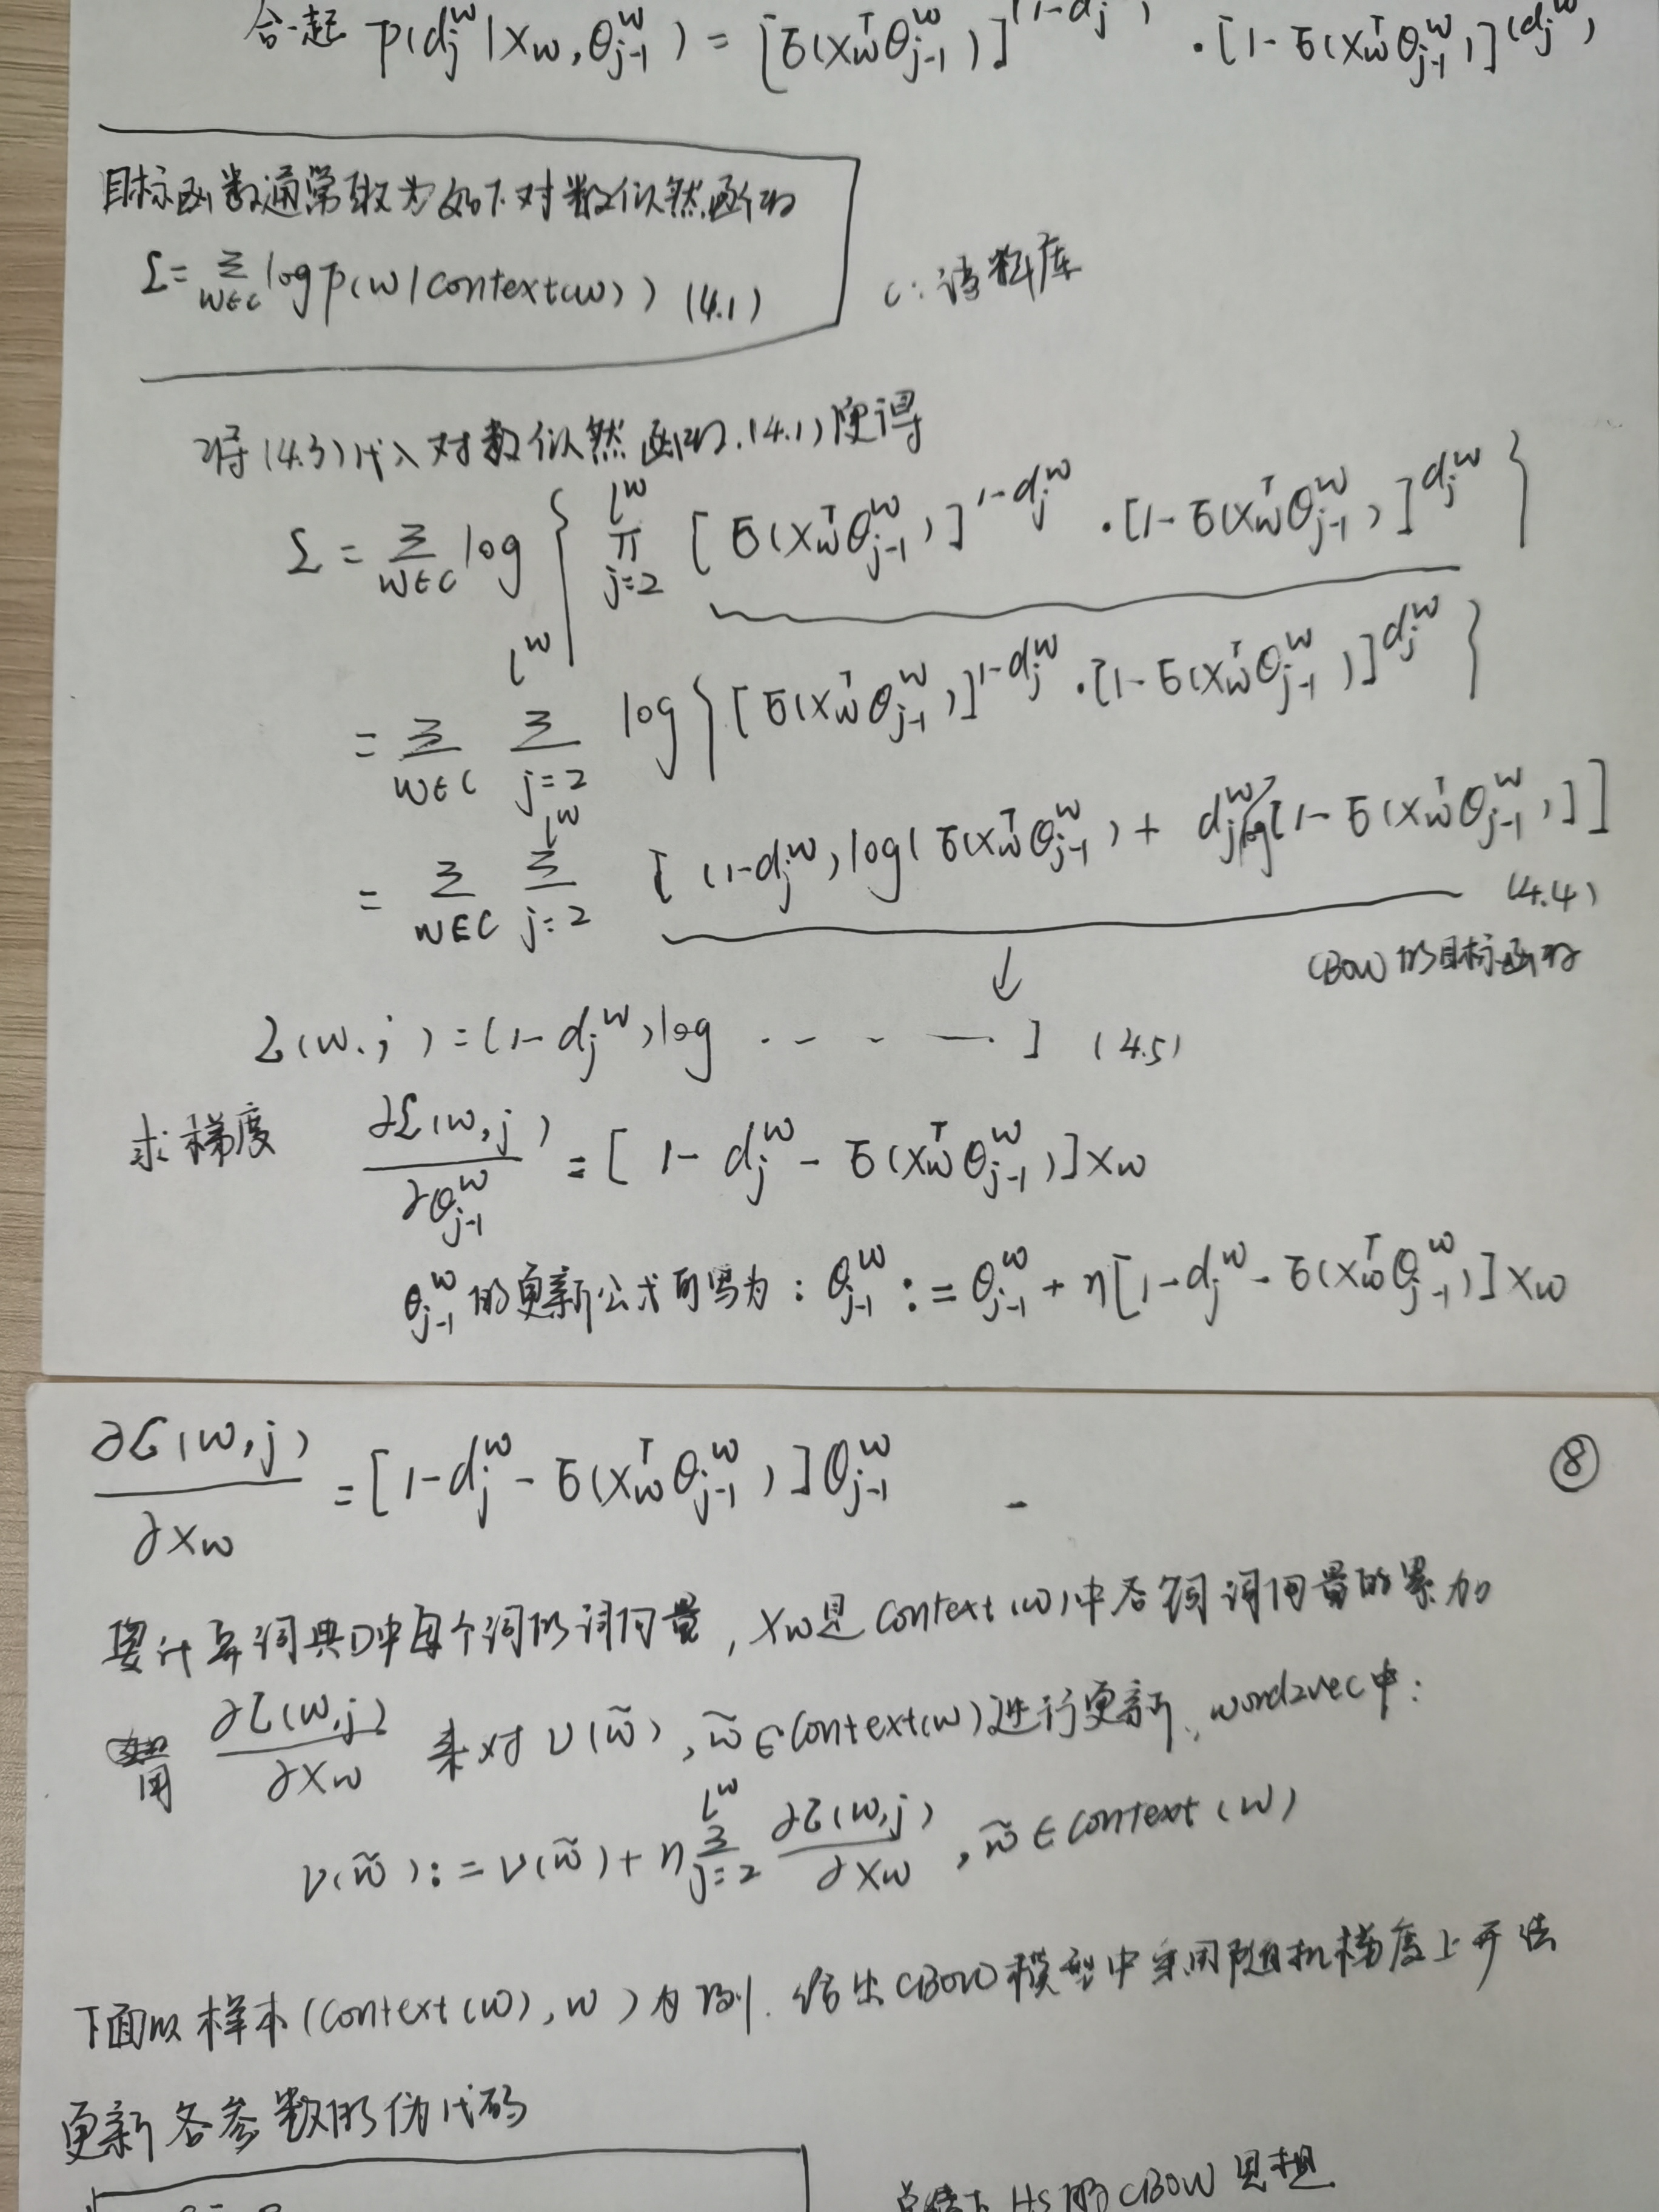 合一起 p(d_j^w|x_w,θ_{j-1}^w) = [σ(x_w^Tθ_{j-1}^w)]^{(1-d_j^w)} · [1-σ(x_w^Tθ_{j-1}^w)]^{(d_j^w)}
目标函数通常取为如下对数似然函数
L = Σ_{w∈C} log p(w|Context(w)) (4.1)
C: 语料库
将(4.3)代入对数似然函数(4.1)便得
L = Σ_{w∈C} log { Π_{j=2}^{l^w} [σ(x_w^Tθ_{j-1}^w)]^{1-d_j^w} · [1-σ(x_w^Tθ_{j-1}^w)]^{d_j^w} }
= Σ_{w∈C} Σ_{j=2}^{l^w} log { [σ(x_w^Tθ_{j-1}^w)]^{1-d_j^w} · [1-σ(x_w^Tθ_{j-1}^w)]^{d_j^w} }
= Σ_{w∈C} Σ_{j=2}^{l^w} [(1-d_j^w)log(σ(x_w^Tθ_{j-1}^w) + d_j^w log[1-σ(x_w^Tθ_{j-1}^w)]]
(4.4)
↓
CBOW的目标函数
L(w,j) = (1-d_j^w)log ····] (4.5)
求梯度 ∂L(w,j)/∂θ_{j-1}^w = [1-d_j^w-σ(x_w^Tθ_{j-1}^w)]x_w
θ_{j-1}^w 的更新公式可写为: θ_{j-1}^w := θ_{j-1}^w + η[1-d_j^w-σ(x_w^Tθ_{j-1}^w)]x_w
∂L(w,j)/∂x_w = [1-d_j^w-σ(x_w^Tθ_{j-1}^w)]θ_{j-1}^w
⑧
要计算词典D中每个词的词向量, x_w是Context(w)中各词词向量的累加
用 ∂L(w,j)/∂x_w 来对 v(w̃), w̃∈Context(w)进行更新, word2vec中:
v(w̃) := v(w̃) + η Σ_{j=2}^{l^w} ∂L(w,j)/∂x_w, w̃∈Context(w)
下面以样本(Context(w), w)为例. 给出CBOW模型中采用随机梯度上升法
更新各参数的伪代码
HS的CBOW思想